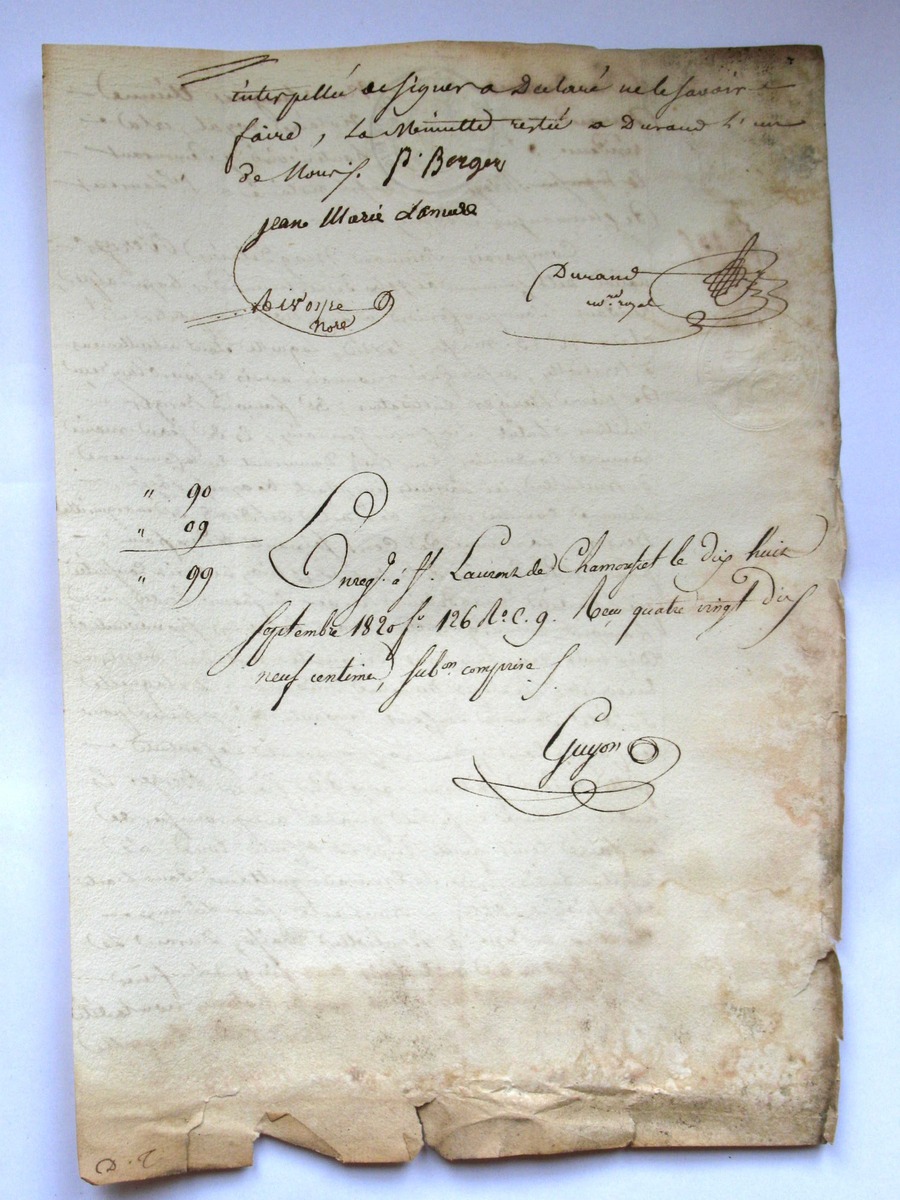 interpellée de signer a Declaré ne le Savoir
faire, La Minutte restée a Durand L'un
de Nous.
P. Berger
jean Marie Lamure
Durand
no.re royal
Nore
" 90
" 09
" 99
Enreg.é à St. Laurent de Chamousset le dix huit
Septembre 1820 fo. 126 Ro. C. 9. Reçu quatre vingt dix
neuf centimes, Sub.on comprise.
Guyon